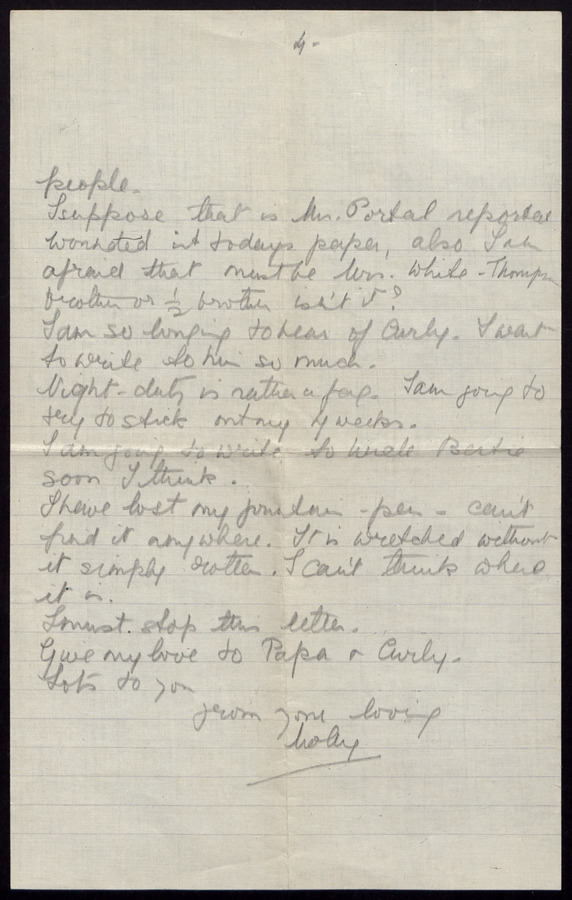 4-
people.
I suppose that is Mr. Portal reported
wounded in todays paper, also I am
afraid that must be Mrs. White-Thompson
brother or ½ brother isn't it?
I am so longing to hear of Curly. I want
to write to him so much.
Night-duty is rather a fag. I am going to
try to stick out my 4 weeks.
I am going to write to Uncle Bertie
soon I think.
I have lost my fountain-pen - can't
find it anywhere. It is wretched without
it simply rotten. I can't think where
it is.
I must stop this letter.
Give my love to Papa & Curly.
Lots to you
from your loving